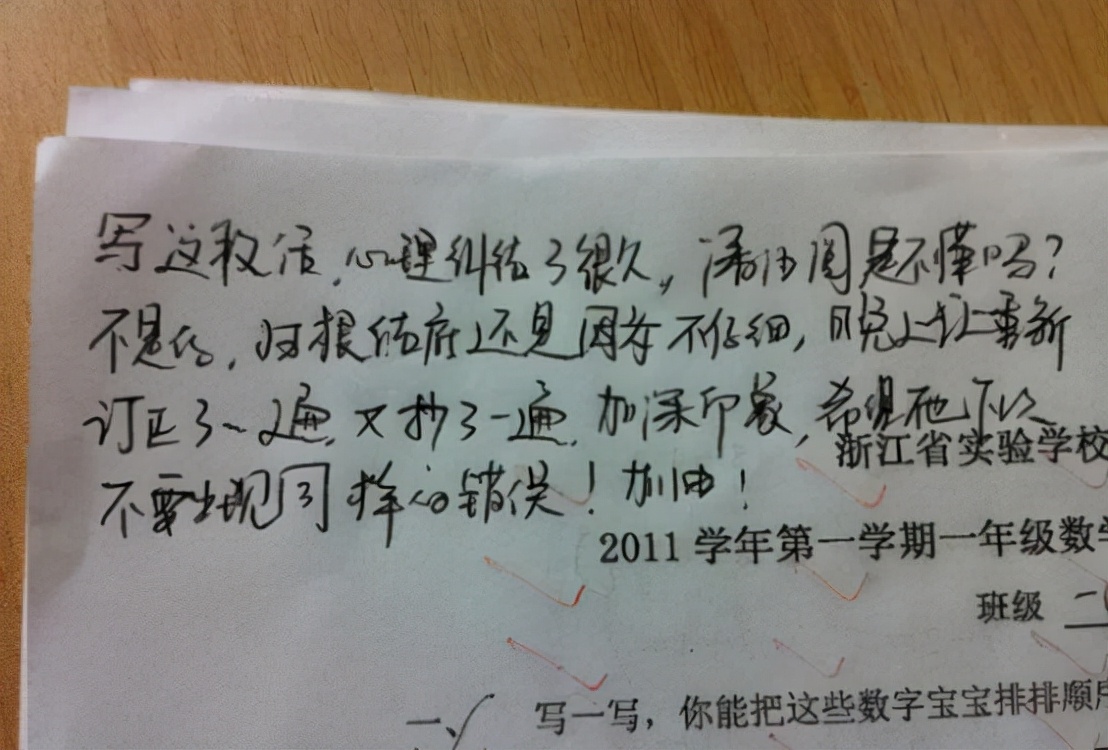 写这段话,心理纠结了很久,潘油周是不懂吗?
不是的,归根结底还是因为不仔细,昨晚上让重新
订正了一遍,又抄了一遍,加深印象,希望他下次
不要出现同样的错误!加油!
浙江省实验学校
2011 学年第一学期一年级数学
班级 二
一、写一写,你能把这些数字宝宝排排顺序